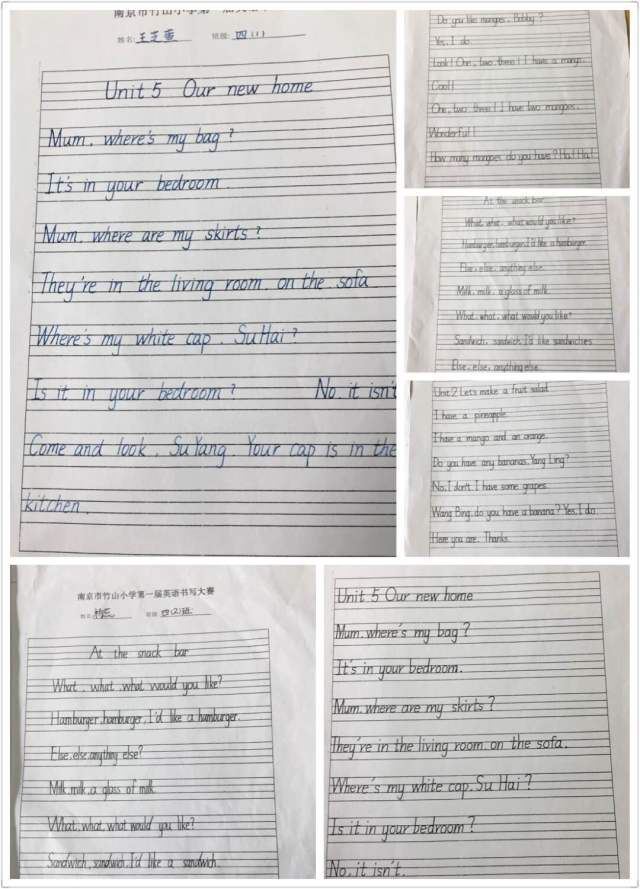 南京市竹山小学第一届英语书
姓名: 班级: 四(1)
Unit 5 Our new home
Mum, where's my bag?
It's in your bedroom.
Mum, where are my skirts?
They're in the living room, on the sofa
Where's my white cap, Su Hai?
Is it in your bedroom? No, it isn't
Come and look, Su Yang. Your cap is in the
kitchen.
Do you like mangoes, Bobby?
Yes, I do.
Look! One, two, three! I have a mango.
Cool!
One, two, three! I have two mangoes.
Wonderful!
How many mangoes do you have? Ha! Ha!
At the snack bar
What, what, what would you like?
Hamburger, hamburger, I'd like a hamburger.
Else, else, anything else
Milk, milk, a glass of milk.
What, what, what would you like?
Sandwich, sandwich, I'd like sandwiches
Else, else, anything else.
Unit 2 Let's make a fruit salad
I have a pineapple.
I have a mango and an orange.
Do you have any bananas, Yang Ling?
No, I don't. I have some grapes.
Wang Bing, do you have a banana? Yes, I do.
Here you are. Thanks.
南京市竹山小学第一届英语书写大赛
姓名: 班级: 四(2)班
At the snack bar
What, what, what would you like?
Hamburger, hamburger, I'd like a hamburger.
Else, else, anything else?
Milk, milk, a glass of milk.
What, what, what would you like?
Sandwich, sandwich, I'd like a sandwich.
Unit 5 Our new home
Mum, where's my bag?
It's in your bedroom.
Mum, where are my skirts?
They're in the living room, on the sofa.
Where's my white cap, Su Hai?
Is it in your bedroom?
No, it isn't.